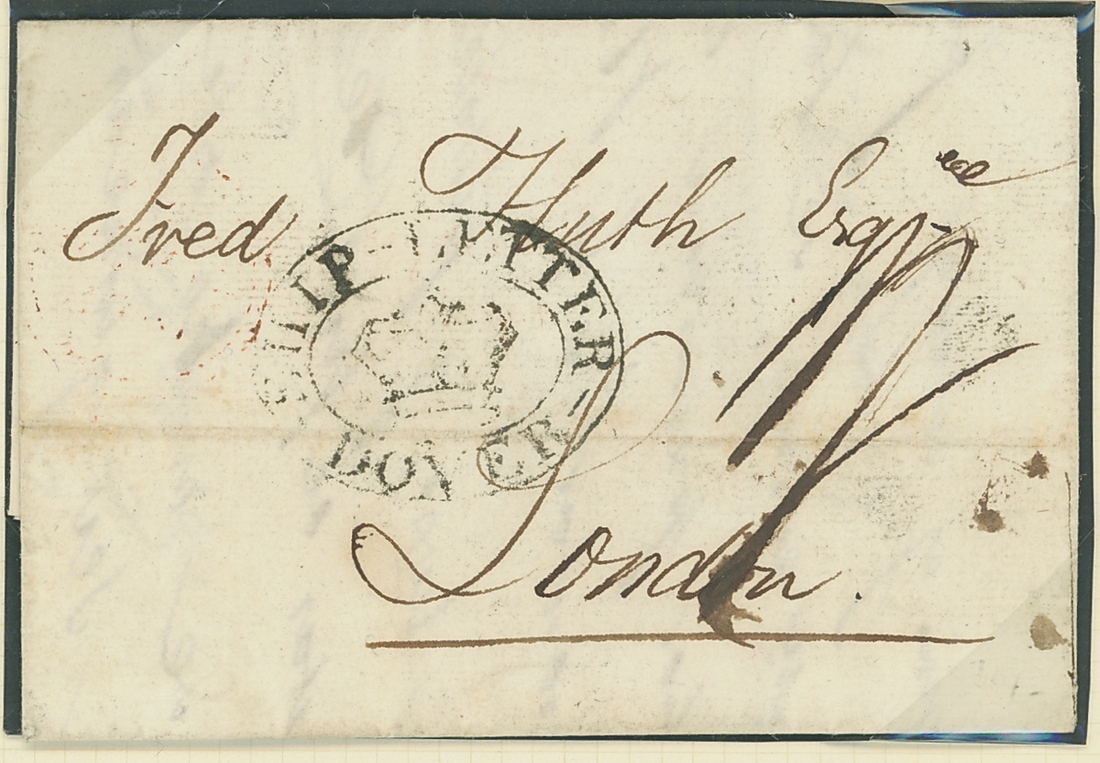 Fred Huth Esqre
SHIP-LETTER
DOVER
London.